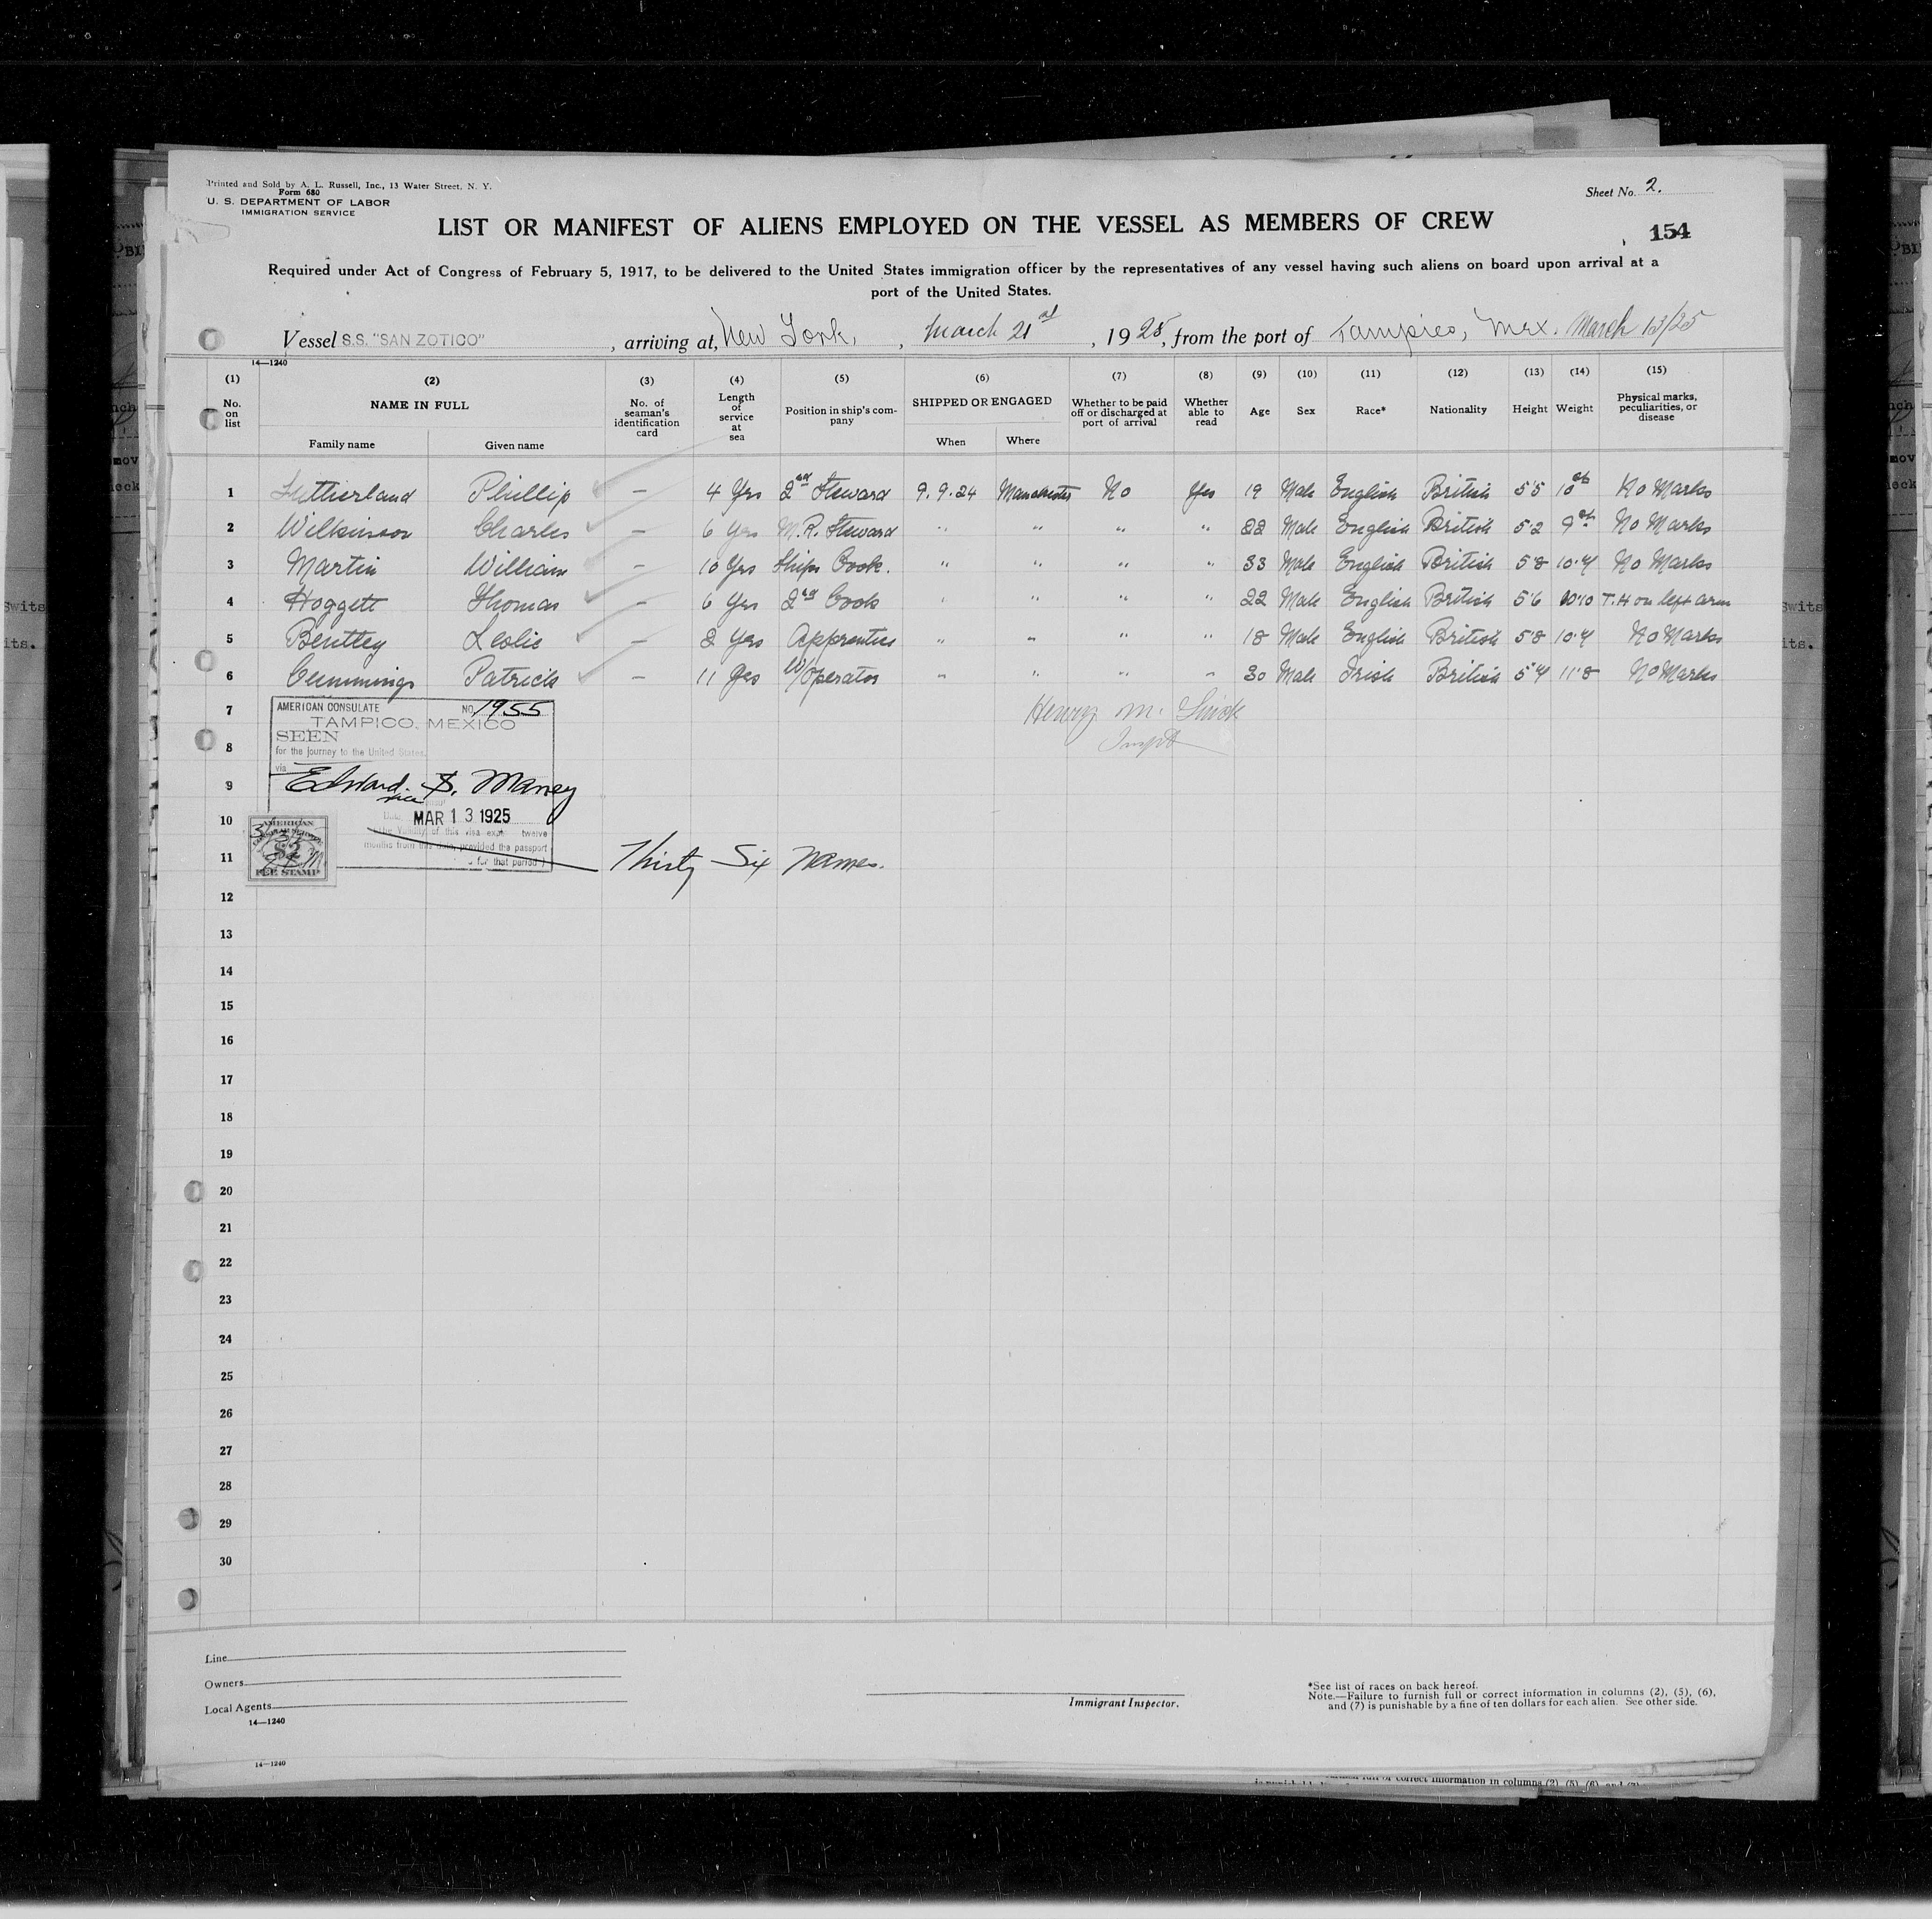 Printed and Sold by A. L. Russell, Inc., 13 Water Street, N. Y.
Form 680
U. S. DEPARTMENT OF LABOR
IMMIGRATION SERVICE
Sheet No. 2.
LIST OR MANIFEST OF ALIENS EMPLOYED ON THE VESSEL AS MEMBERS OF CREW
154
Required under Act of Congress of February 5, 1917, to be delivered to the United States immigration officer by the representatives of any vessel having such aliens on board upon arrival at a
port of the United States.
Vessel S.S. "SAN ZOTICO", arriving at, New York, , March 21st, 1925, from the port of Tampico, Mex. March 13/25
14—1240
(1) (2) (3) (4) (5) (6) (7) (8) (9) (10) (11) (12) (13) (14) (15)
No. on list NAME IN FULL No. of seaman's identification card Length of service at sea Position in ship's company SHIPPED OR ENGAGED Whether to be paid off or discharged at port of arrival Whether able to read Age Sex Race* Nationality Height Weight Physical marks, peculiarities, or disease
Family name Given name When Where
1 Sutherland Phillip — 4 Yrs 2nd Steward 9.9.24 Manchester No Yes 19 Male English British 5'5 10st No Marks
2 Wilkinson Charles — 6 Yrs M.R. Steward " " " " 22 Male English British 5'2 9st No Marks
3 Martin William — 10 Yrs Ships Cook. " " " " 33 Male English British 5'8 10.4 No Marks
4 Hoggett Thomas — 6 Yrs 2nd Cook " " " " 22 Male English British 5'6 10.10 T.H on left arm
5 Bentley Leslie — 2 Yrs Apprentice " " " " 18 Male English British 5'8 10.4 No Marks
6 Cummings Patrick — 11 Yrs W/Operator " " " " 30 Male Irish British 5'4 11.8 No Marks
7
AMERICAN CONSULATE NO. 1955
TAMPICO, MEXICO
SEEN
for the journey to the United States.
via
Henry M.
Inspt
8
9
Edward S. Maney
vice
10
Date MAR 13 1925
The validity of this visa expires twelve
months from this date, provided the passport
for that period.
AMERICAN
$2
FEE STAMP
11 Thirty Six Names.
12
13
14
15
16
17
18
19
20
21
22
23
24
25
26
27
28
29
30
Line
Owners
Local Agents
14—1240
Immigrant Inspector.
*See list of races on back hereof.
Note.—Failure to furnish full or correct information in columns (2), (5), (6),
and (7) is punishable by a fine of ten dollars for each alien. See other side.
14—1240
full or correct information in columns (2), (5), (6), and (7)